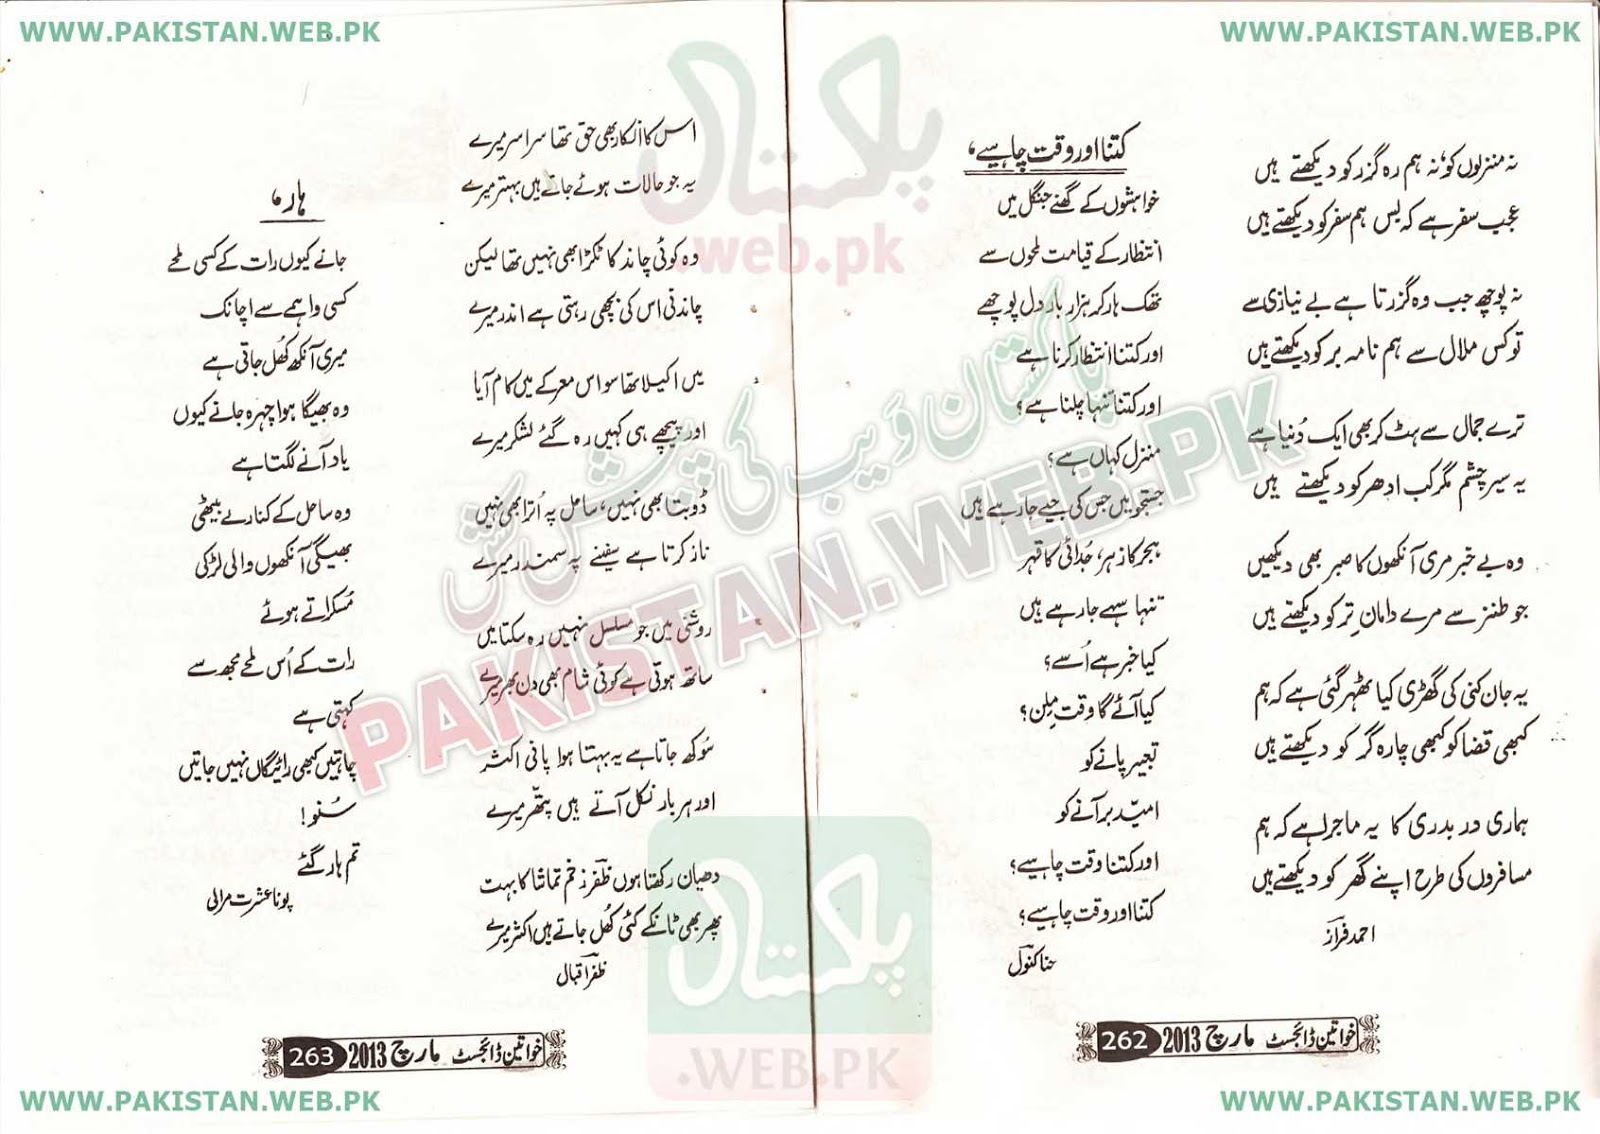 WWW.PAKISTAN.WEB.PK
WWW.PAKISTAN.WEB.PK
نہ منزلوں کو نہ ہم رہ گزر کو دیکھتے ہیں
عجب سفر ہے کہ بس ہم سفر کو دیکھتے ہیں
نہ پوچھ جب وہ گزرتا ہے بے نیازی سے
تو کس ملال سے ہم نامہ بر کو دیکھتے ہیں
ترے جمال سے ہٹ کر بھی ایک دُنیا ہے
یہ سیر چشم مگر کب ادھر کو دیکھتے ہیں
وہ بے خبر مری آنکھوں کا صبر بھی دیکھیں
جو طنز سے مرے دامانِ تر کو دیکھتے ہیں
یہ جان کنی کی گھڑی کیا ٹھہر گئی ہے کہ ہم
کبھی قضا کو کبھی چارہ گر کو دیکھتے ہیں
ہماری در بدری کا یہ ماجرا ہے کہ ہم
مسافروں کی طرح اپنے گھر کو دیکھتے ہیں
احمد فراز
کتنا اور وقت چاہیے،
خواہشوں کے گھنے جنگل میں
انتظار کے قیامت لمحوں سے
تھک ہار کر ہزار بار دل پوچھے
اور کتنا انتظار کرنا ہے
اور کتنا تنہا چلنا ہے؟
منزل کہاں ہے؟
جستجو میں جس کی جیے جا رہے ہیں
ہجر کا زہر، جُدائی کا قہر
تنہا سہے جا رہے ہیں
کیا خبر ہے اُسے؟
کیا آئے گا وقتِ مِلن؟
تعبیر پانے کو
امیّد بر آنے کو
اور کتنا وقت چاہیے؟
کتنا اور وقت چاہیے؟
حنا کنول
خواتین ڈائجسٹ مارچ 2013 262
اس کا انکار بھی حق تھا سراسر میرے
یہ جو حالات ہوئے جاتے ہیں بہتر میرے
وہ کوئی چاند کا ٹکڑا بھی نہیں تھا لیکن
چاندنی اس کی بچھی رہتی ہے اندر میرے
میں اکیلا تھا سو اس معرکے میں کام آیا
اور پیچھے ہی کہیں رہ گئے لشکر میرے
ڈوبتا بھی نہیں، ساحل پہ اُترا بھی نہیں
ناز کرتا ہے سفینے پہ سمندر میرے
روشنی میں جو مسلسل نہیں رہ سکتا میں
ساتھ ہوتی ہے کوئی شام بھی دن بھر میرے
سُوکھ جاتا ہے یہ بہتا ہوا پانی اکثر
اور ہر بار نکل آتے ہیں پتھّر میرے
دھیان رکھتا ہوں ظفر زخم تماشا کا بہت
پھر بھی ٹانکے کئی کھُل جاتے ہیں اکثر میرے
ظفر اقبال
ہار،
جانے کیوں رات کے کسی لمحے
کسی واہمے سے اچانک
میری آنکھ کھُل جاتی ہے
وہ بھیگا ہوا چہرہ جانے کیوں
یاد آنے لگتا ہے
وہ ساحل کے کنارے بیٹھی
بھیگی آنکھوں والی لڑکی
مُسکراتے ہوئے
رات کے اُس لمحے مجھ سے
کہتی ہے
چاہتیں کبھی رائیگاں نہیں جاتیں
سُنو!
تم ہار گئے
عشرت
خواتین ڈائجسٹ مارچ 2013 263
پاکستان
.web.pk
پاکستان وَیب کی پیشکش
PAKISTAN.WEB.PK
پاکستان
.WEB.PK
WWW.PAKISTAN.WEB.PK
WWW.PAKISTAN.WEB.PK